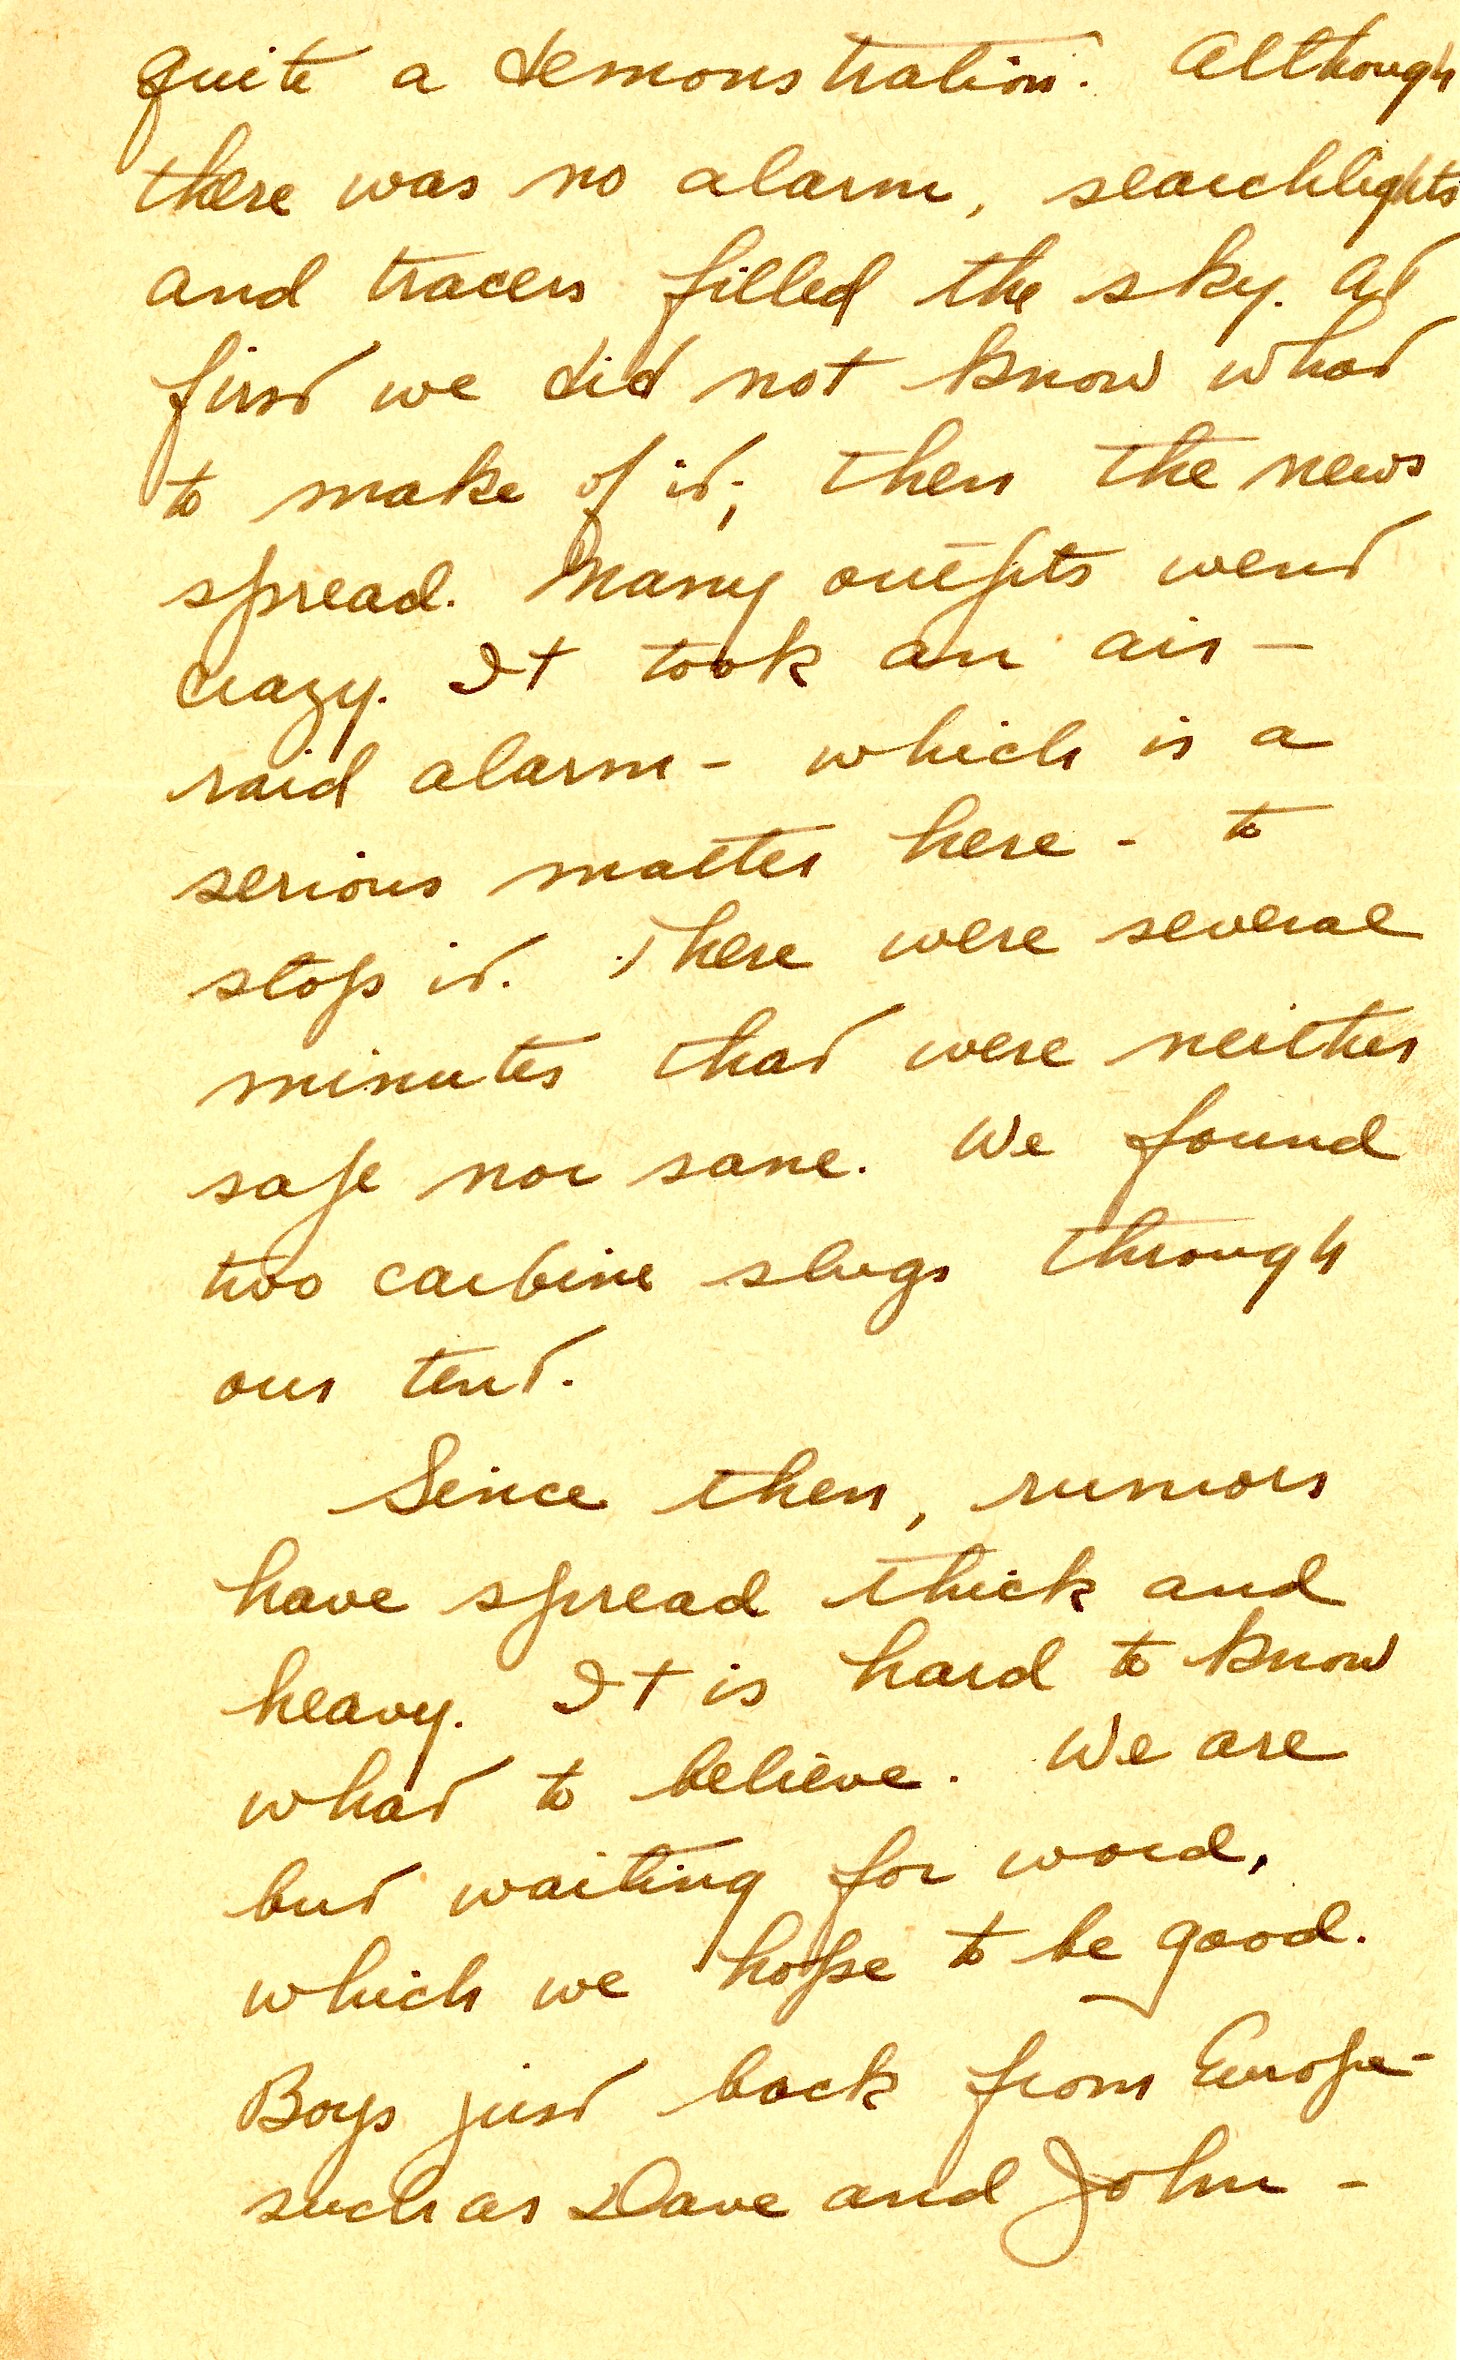 quite a demonstration. Although
there was no alarm, searchlights
and tracers filled the sky. At
first we did not know what
to make of it; then the news
spread. Many outfits went
crazy. It took an air-
raid alarm - which is a
serious matter here - to
stop it. There were several
minutes that were neither
safe nor sane. We found
two carbine slugs through
our tent.
Since then, rumors
have spread thick and
heavy. It is hard to know
what to believe. We are
but waiting for word,
which we hope to be good.
Boys just back from Europe -
such as Dave and John -